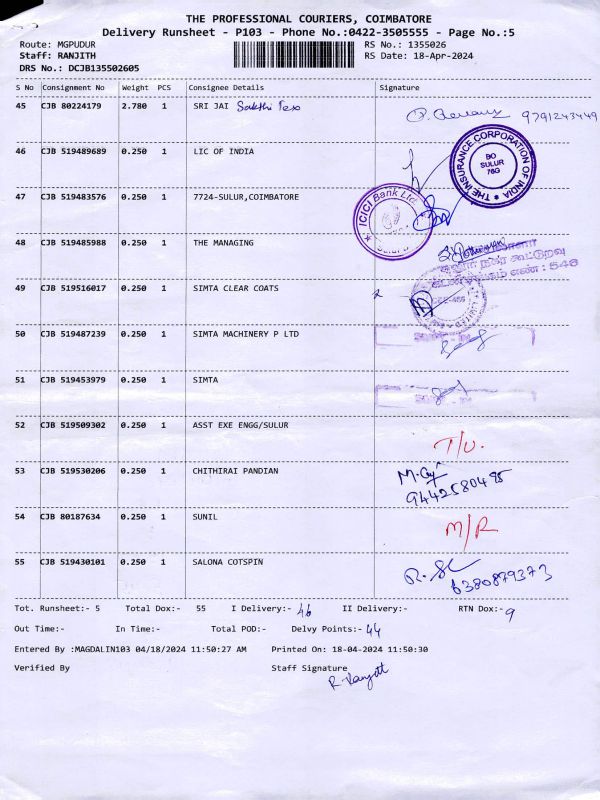 THE PROFESSIONAL COURIERS, COIMBATORE
Delivery Runsheet - P103 - Phone No.:0422-3505555 - Page No.:5
Route: MGPUDUR RS No.: 1355026
Staff: RANJITH RS Date: 18-Apr-2024
DRS No.: DCJB135502605
S No Consignment No Weight PCS Consignee Details Signature
45 CJB 80224179 2.780 1 SRI JAI Sakthi 9791243449
46 CJB 519489689 0.250 1 LIC OF INDIA
THE INSURANCE CORPORATION OF INDIA
BO
SULUR
76G
47 CJB 519483576 0.250 1 7724-SULUR,COIMBATORE
ICICI Bank Ltd
48 CJB 519485988 0.250 1 THE MANAGING
நகர் கூட்டுறவு
எண் : 546
49 CJB 519516017 0.250 1 SIMTA CLEAR COATS
50 CJB 519487239 0.250 1 SIMTA MACHINERY P LTD
51 CJB 519453979 0.250 1 SIMTA
52 CJB 519509302 0.250 1 ASST EXE ENGG/SULUR T/U.
53 CJB 519530206 0.250 1 CHITHIRAI PANDIAN
9442580495
54 CJB 80187634 0.250 1 SUNIL M/R
55 CJB 519430101 0.250 1 SALONA COTSPIN
6380879373
Tot. Runsheet:- 5 Total Dox:- 55 I Delivery:- 46 II Delivery:- RTN Dox:- 9
Out Time:- In Time:- Total POD:- Delvy Points:- 44
Entered By :MAGDALIN103 04/18/2024 11:50:27 AM Printed On: 18-04-2024 11:50:30
Verified By Staff Signature
R. Ranjith